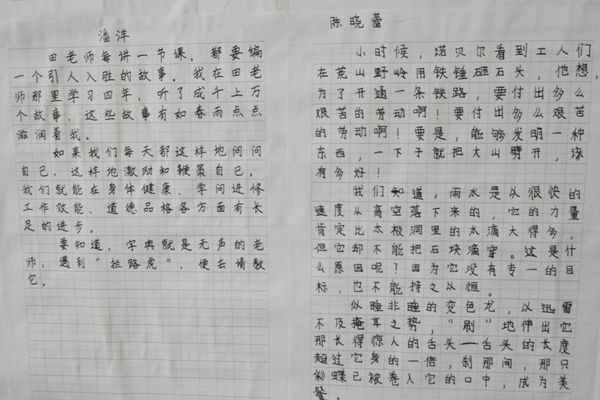 潘洋
田老师每讲一节课，都要编
一个引人入胜的故事。我在田老
师那里学习四年，听了成千上万
个故事，这些故事有如春雨点点
滋润着我。
如果我们每天都这样地问问
自己，这样地激励和鞭策自己，
我们就能在身体健康、学问进修
工作效能、道德品格各方面有长
足的进步。
要知道，字典就是无声的老
师，遇到“拦路虎”，便去请教
它。
陈晓蕾
小时候，诺贝尔看到工人们
在荒山野岭用铁锤砸石头，他想，
为了开通一条铁路，要付出多么
艰苦的劳动啊！要付出多么艰苦
的劳动啊！要是，能够发明一种
东西，一下子就把大山劈开，该
有多好！
我们知道，雨水是以很快的
速度从高空落下来的，它的力量
肯定比太极洞里的水滴大得多，
但它却不能把石块滴穿。这是什
么原因呢？因为它没有专一的目
标，也不能持之以恒。
似睡非睡的变色龙，以迅雷
不及掩耳之势，“刷”地伸出它
那长得惊人的舌头—舌头的长度
超过它身的一倍，刹那间，那只
彩蝶已被卷入它的口中，成为美
餐。